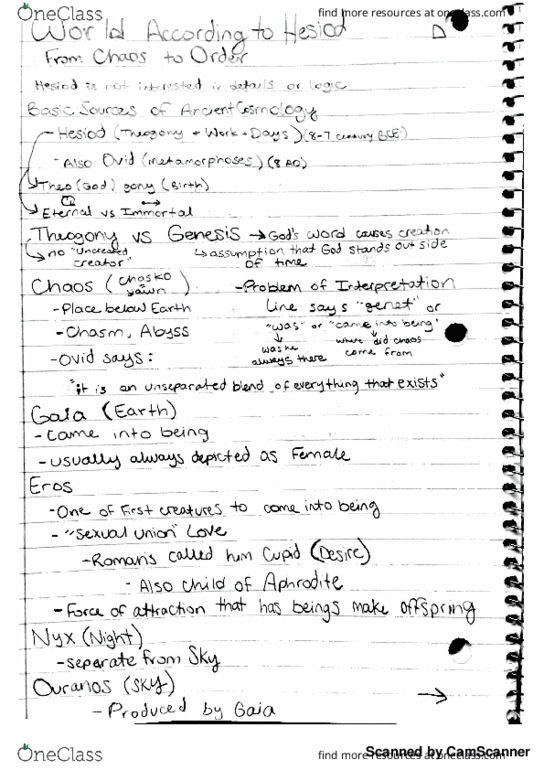 OneClass find more resources at oneclass.com
World According to Hesiod
From Chaos to Order
Hesiod is not interested in details or logic
Basic Sources of Ancient Cosmology
- Hesiod (Theogony + Work + Days) (8-7 century BCE)
- Also Ovid (metamorphoses) (8 AD)
Theo (God) gony (Birth)
Eternal vs Immortal
Theogony vs Genesis → God's word causes creation
↳ no "uncreated creator"
↳ assumption that God stands out side of time
Chaos (chasko yawn)
- Place below Earth
- Chasm, Abyss
- Ovid says:
"it is an unseparated blend of everything that exists"
- Problem of Interpretation
Line says "genet" or
"was" or "came into being"
↓ was he always there
↓ where did chaos come from
Gaia (Earth)
- Came into being
- usually always depicted as Female
Eros
- One of First creatures to come into being
- "sexual union" Love
- Romans called him Cupid (Desire)
- Also child of Aphrodite
- Force of attraction that has beings make offspring
Nyx (Night)
- separate from Sky
Ouranos (Sky)
- Produced by Gaia
→
OneClass find more resources at oneclass.com
Scanned by CamScanner